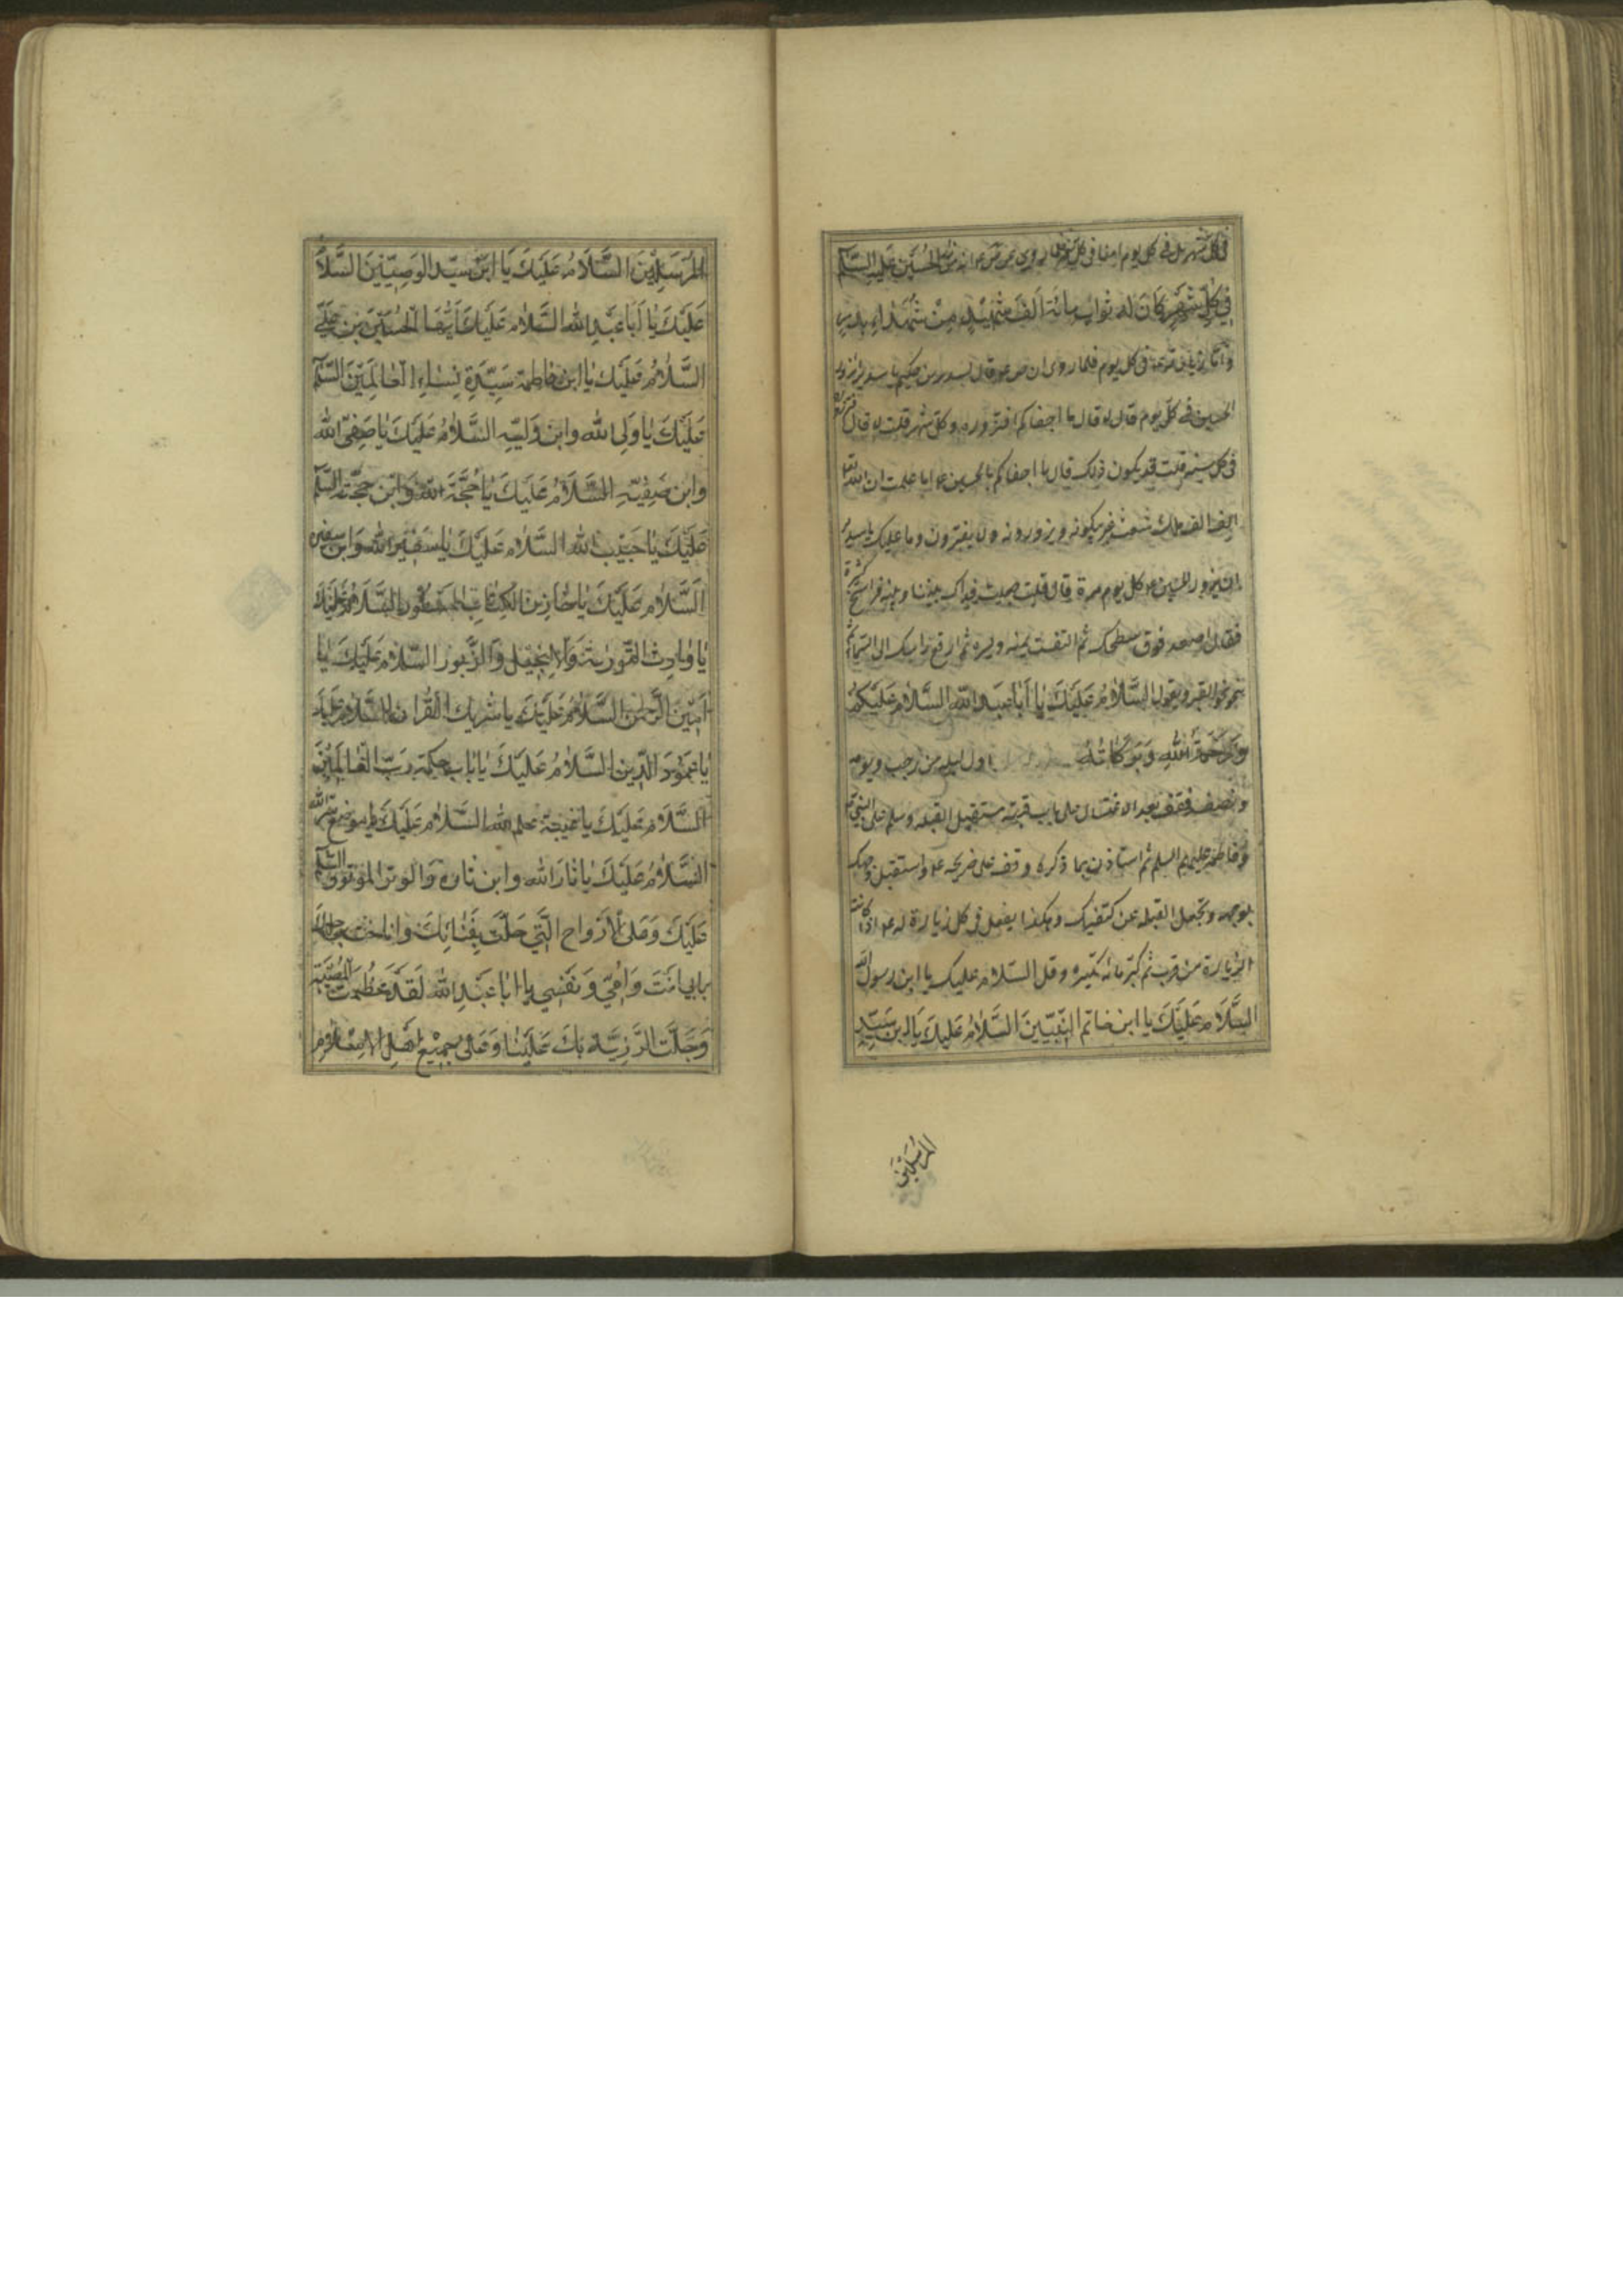 في كل شهر بل في كل يوم اما في كل شهر فلما روي عن ص ع انه من زار الحسين عليه السلم
في كل شهر كان له ثواب مائة الف شهيد من شهداء بدر
واما زيارته في كل يوم فلما روي ان ص ع قال لسدير بن حكيم يا سدير تزور
الحسين في كل يوم قال لا قال ما اجفاكم افتزوره في كل شهر قلت لا قال
في كل سنة قلت قد يكون ذلك قال ما اجفاكم بالحسين ع اما علمت ان لله
الف الف ملك شعث غبر يبكونه ويزورونه ولا يفترون وما عليك يا سدير
ان تزور الحسين ع كل يوم مرة قال قلت جعلت فداك بيننا وبينه فراسخ كثيرة
فقال اصعد فوق سطحك ثم التفت يمنة ويسرة ثم ارفع راسك الى السماء ثم
نحو القبر ويقول السلام عليك يا أبا عبد الله السلام عليكم
ورحمة الله وبركاته اول ليلة من رجب ويومه
ونصفه فقف بعد الاغتسال على باب قبته مستقبل القبلة وسلم على النبي
وفاطمة عليهم السلم ثم استأذن بما ذكره وقف على ضريحه ع واستقبل وجهك
بوجهه وتجعل القبلة بين كتفيك وهكذا يفعل في كل زيارة له ع اذا كانت
الزيارة من قرب ثم كبر مائة تكبيرة وقل السلام عليك يا ابن رسول الله
السلام عليك يا ابن خاتم النبيين السلام عليك يا ابن سيد
المرسلين
المرسلين السلام عليك يا ابن سيد الوصيين السلا
عليك يا أبا عبد الله السلام عليك أيها الحسين بن علي
السلام عليك يا ابن فاطمة سيدة نساء العالمين السلم
عليك يا ولي الله وابن وليه السلام عليك يا صفي الله
وابن صفيه السلام عليك يا حجة الله وابن حجته السلم
عليك يا حبيب الله السلام عليك يا سفير الله وابن سفيره
السلام عليك يا خازن الكتاب المسطور السلام عليك
يا وارث التورية والانجيل والزبور السلام عليك يا
أمين الرحمن السلام عليك يا شريك القران السلام عليك
يا عمود الدين السلام عليك يا باب حكمة رب العالمين
السلام عليك يا عيبة علم الله السلام عليك يا موضع سر الله
السلام عليك يا ثار الله وابن ثاره والوتر الموتور السلم
عليك وعلى الأرواح التي حلت بفنائك واناخت برحلك
بابي انت وامي ونفسي يا ابا عبد الله لقد عظمت المصيبة
وجلت الرزية بك علينا وعلى جميع اهل الاسلام